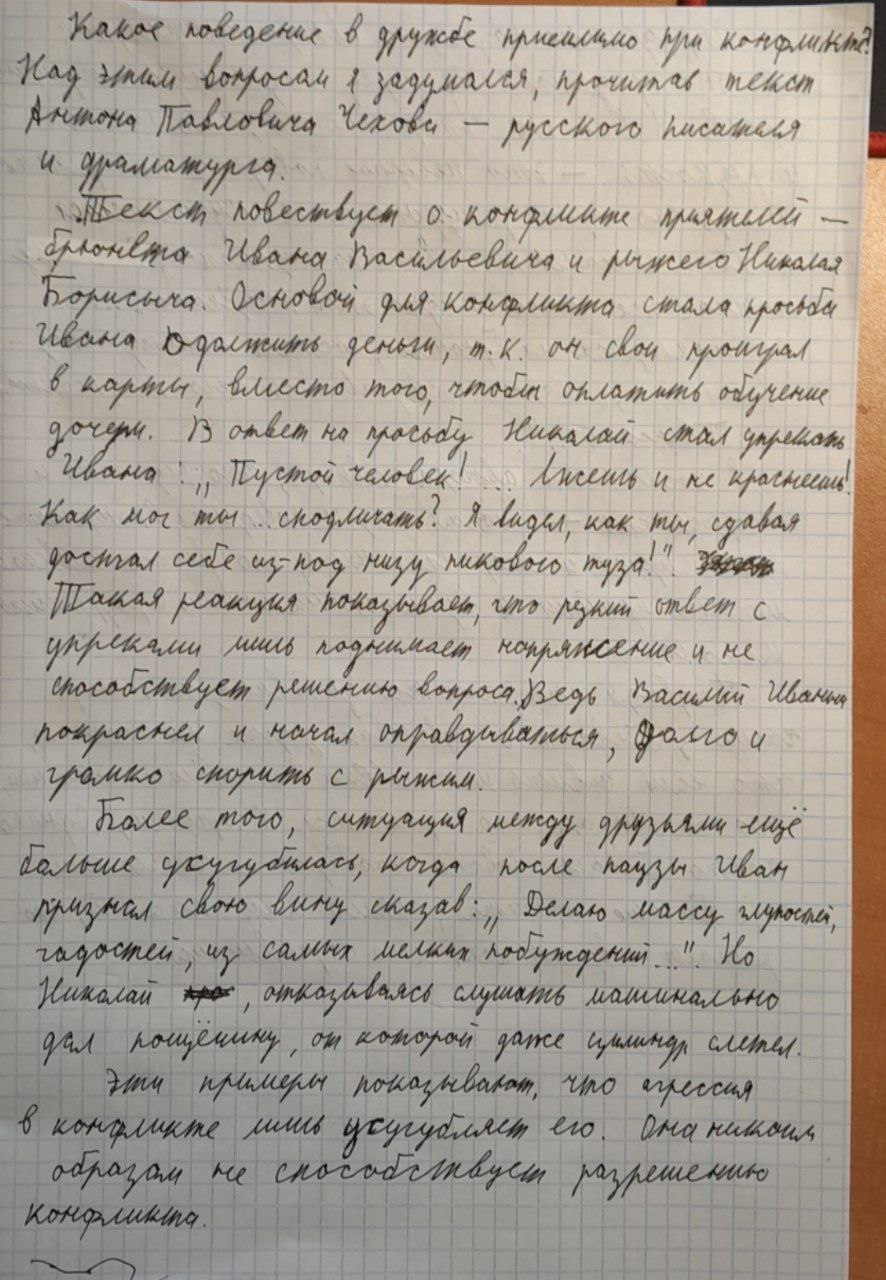 Какое поведение в дружбе приемлимо при конфликте?
Над этим вопросом я задумался, прочитав текст
Антона Павловича Чехова — русского писателя
и драматурга.
Текст повествует о конфликте приятелей —
брюнета Ивана Васильевича и рыжего Николая
Борисыча. Основой для конфликта стала просьба
Ивана одолжить деньги, т.к. он свои проиграл
в карты, вместо того, чтобы оплатить обучение
дочери. В ответ на просьбу Николай стал упрекать
Ивана: „Пустой человек! ... Лжешь и не краснеешь!
Как мог ты .. сподличать? Я видел, как ты, сдавая
достал себе из-под низу пикового туза!".
Такая реакция показывает, что резкий ответ с
упреками лишь поднимает напряжение и не
способствует решению вопроса. Ведь Василий Иваныч
покраснел и начал оправдываться, долго и
громко спорить с рыжим.
Более того, ситуация между друзьями ещё
больше усугубилась, когда после паузы Иван
признал свою вину сказав: „Делаю массу глупостей,
гадостей, из самых мелких побуждений...". Но
Николай , отказываясь слушать машинально
дал пощёчину, от которой даже цилиндр слетел.
Эти примеры показывают, что агрессия
в конфликте лишь усугубляет его. Она никоим
образом не способствует разрешению
конфликта.